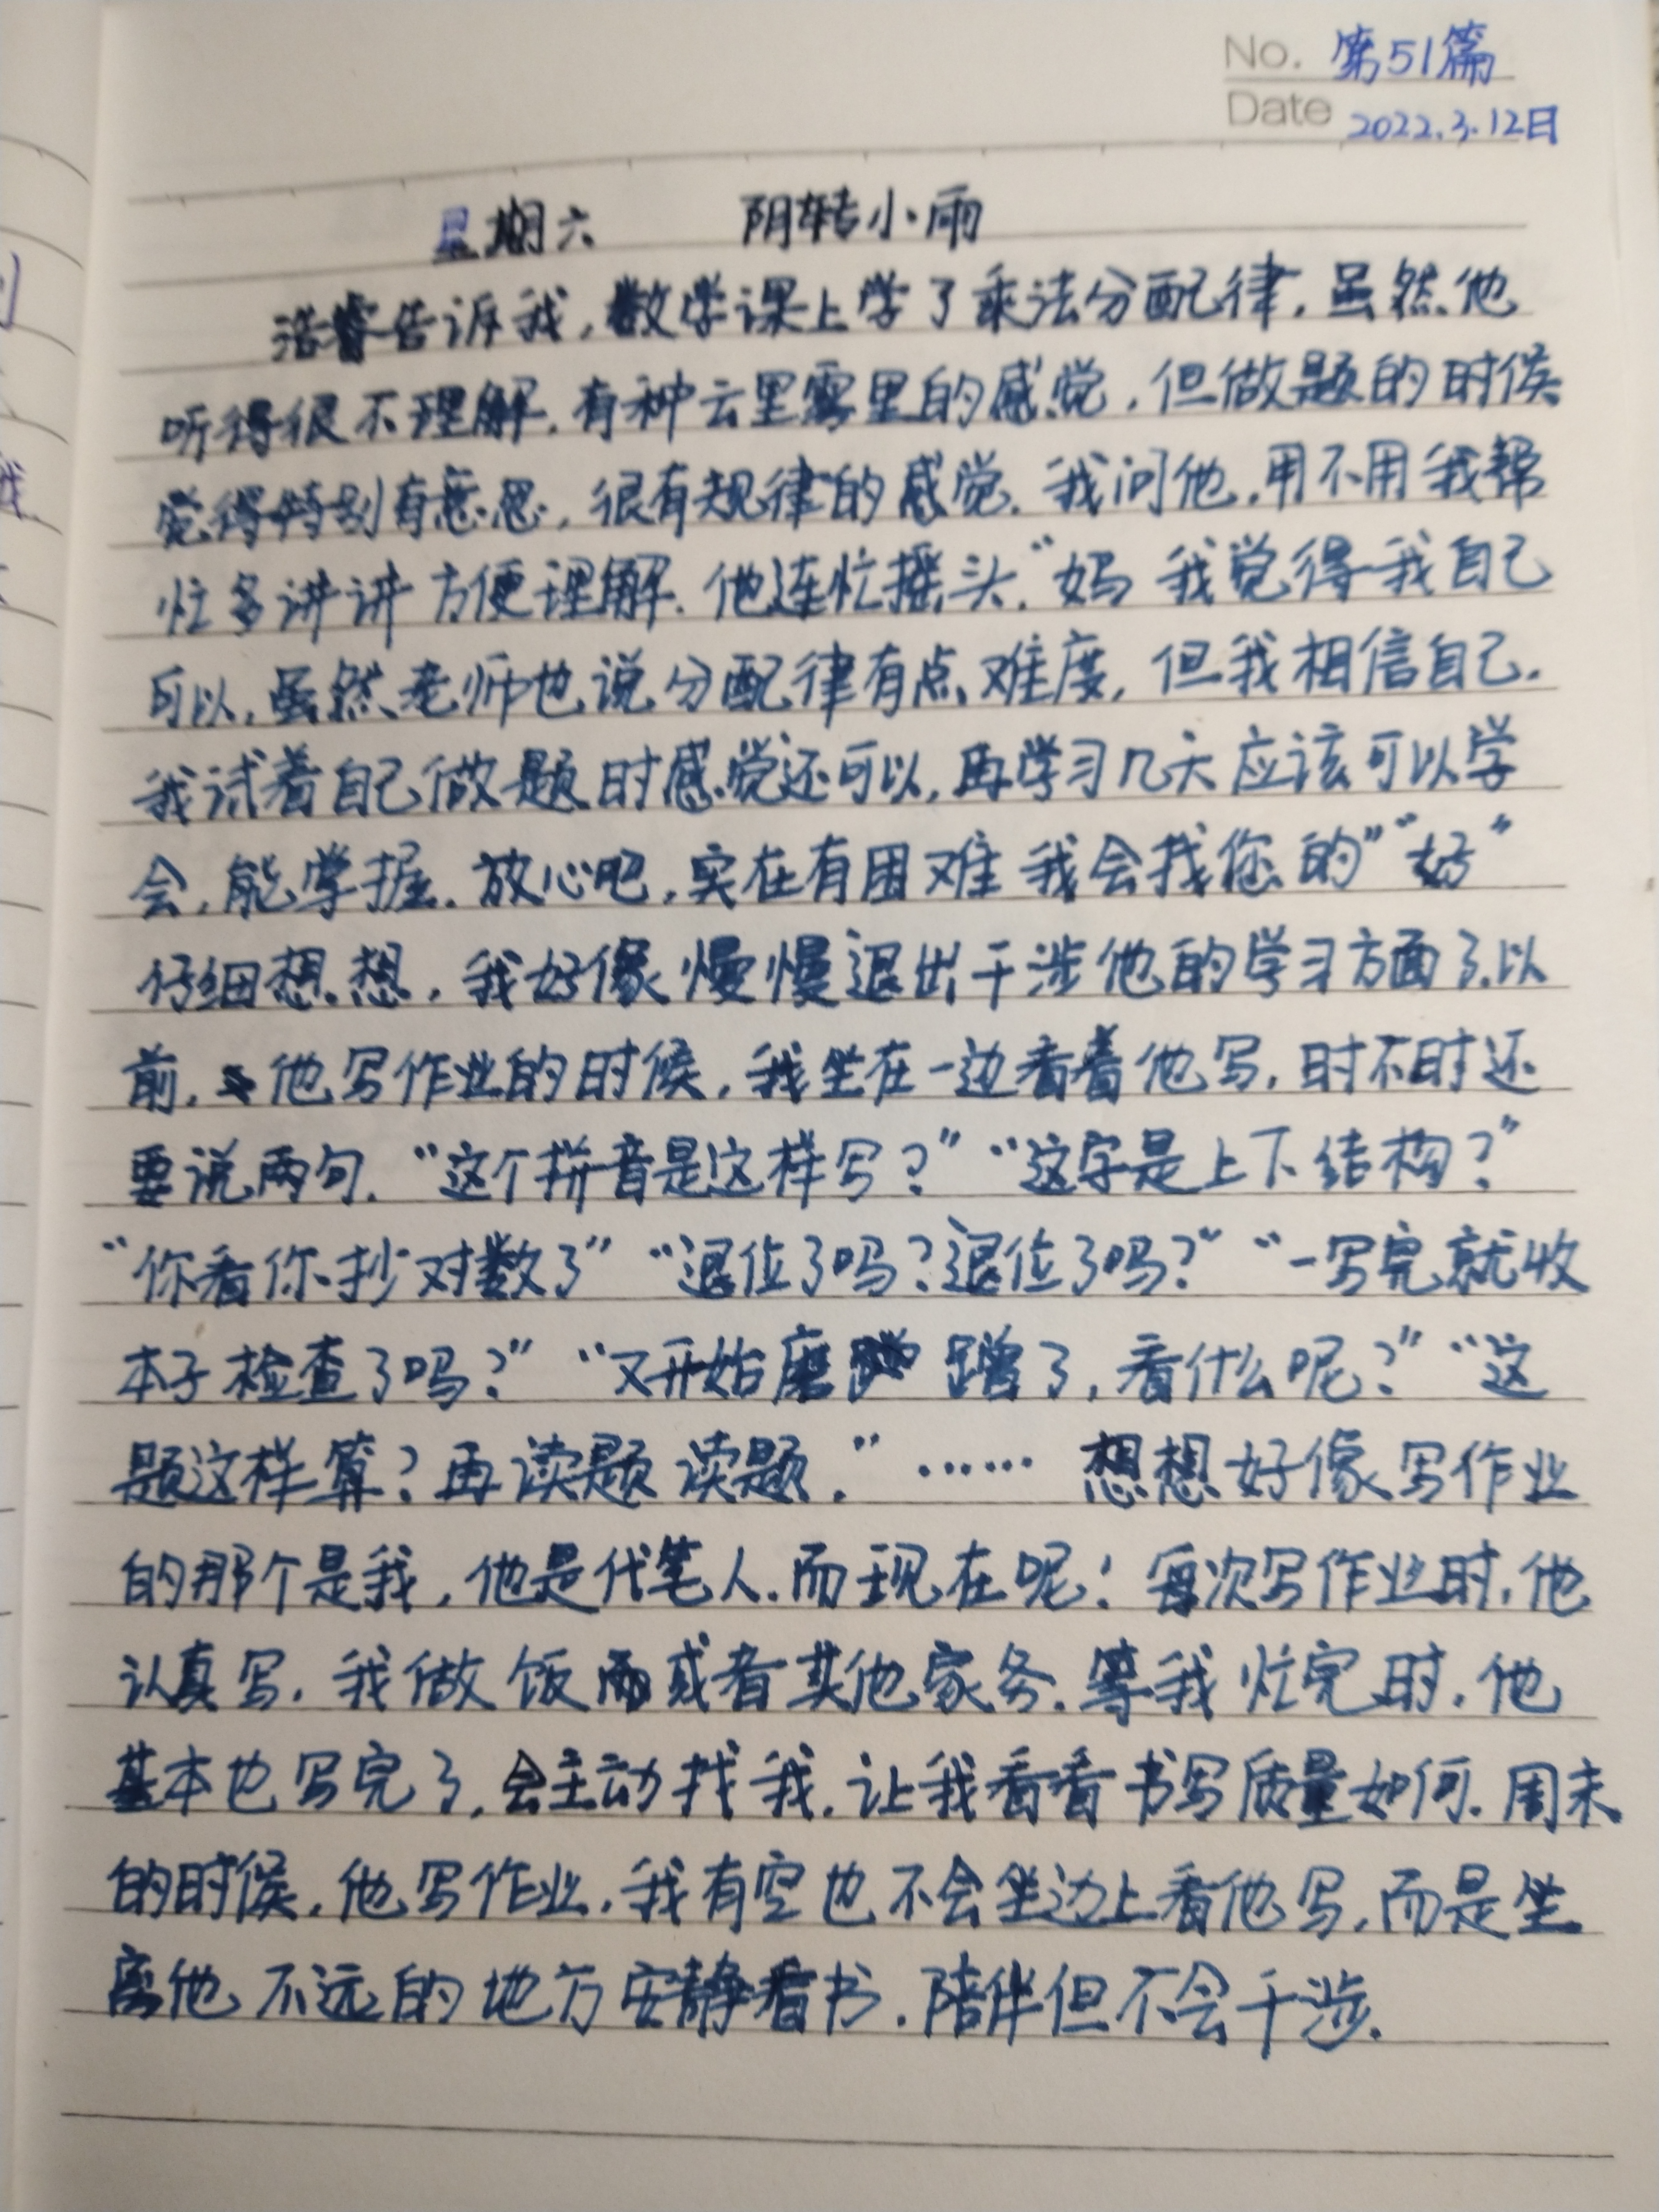 No. 第51篇
Date 2022.3.12日
星期六 阴转小雨
浩睿告诉我,数学课上学了乘法分配律.虽然他
听得很不理解.有种云里雾里的感觉.但做题的时候
觉得特别有意思,很有规律的感觉.我问他.用不用我帮
忙多讲讲方便理解.他连忙摇头."妈 我觉得我自己
可以.虽然老师也说分配律有点难度,但我相信自己.
我试着自己做题时感觉还可以,再学习几天应该可以学
会.能掌握.放心吧,实在有困难我会找您的""好"
仔细想想,我好像慢慢退出干涉他的学习方面了.以
前.他写作业的时候,我坐在一边看着他写.时不时还
要说两句."这个拼音是这样写?""这字是上下结构?"
"你看你抄对数了""退位了吗?退位了吗?""一写完就收
本子检查了吗?""又开始磨蹭了,看什么呢?""这
题这样算?再读题读题."……想想好像写作业
的那个是我,他是代笔人.而现在呢!每次写作业时.他
认真写.我做饭或者其他家务.等我忙完时.他
基本也写完了,会主动找我.让我看看书写质量如何.周末
的时候.他写作业.我有空也不会坐边上看他写.而是坐
离他不远的地方安静看书.陪伴但不会干涉.